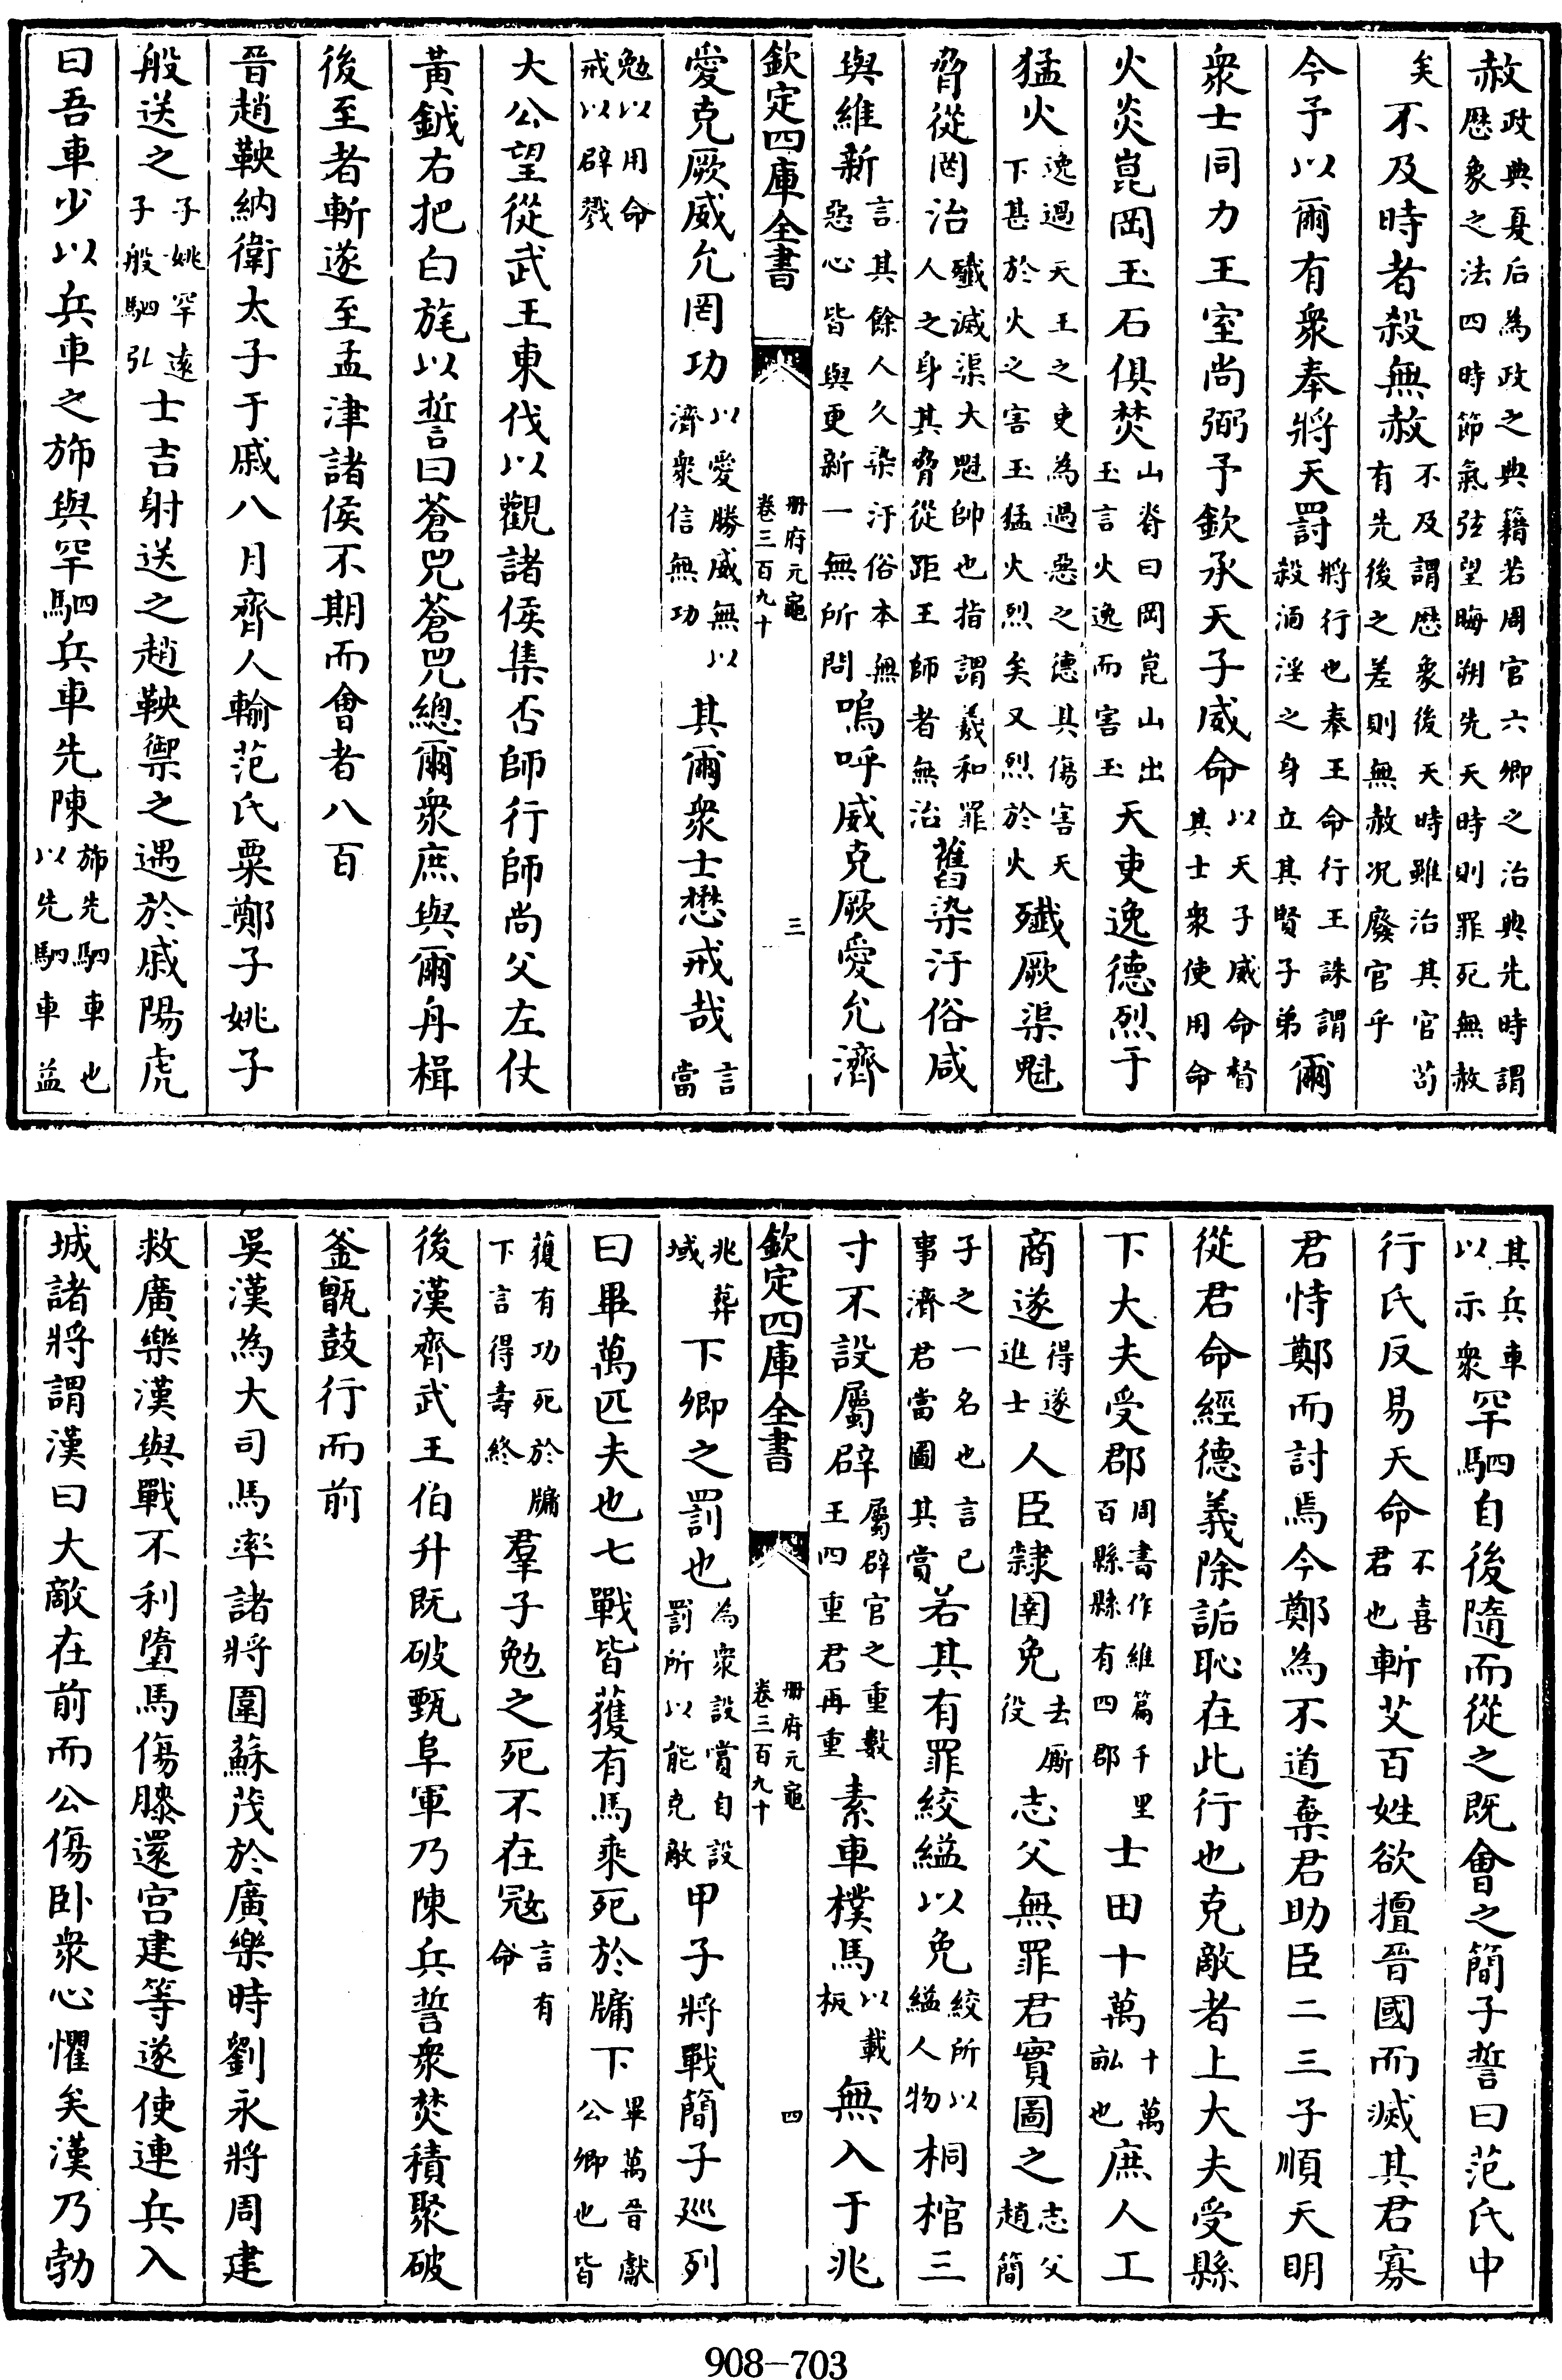 赦政典夏后為政之典籍若周官六卿之治典先時謂歴象之法四時節氣弦望晦朔先天時則罪死無赦
矣不及時者殺無赦不及謂歴象後天時雖治其官苟有先後之差則無赦况廢官乎
今予以爾有衆奉將天罰將行也奉王命行王誅謂殺湎淫之身立其賢子弟爾
衆士同力王室尚弼予欽承天子威命以天子威命督其士衆使用命
火炎崑岡玉石俱焚山脊曰岡崑山出玉言火逸而害玉天吏逸德烈于
猛火逸過天王之吏為過惡之德其傷害天下甚於火之害玉猛火烈矣又烈於火殲厥渠魁
脅從罔治殲滅渠大魁帥也指謂羲和罪人之身其脅從距王師者無治舊染汙俗咸
與維新言其餘人久染汙俗本無惡心皆與更新一無所問嗚呼威克厥愛允濟
欽定四庫全書 册府元龜卷三百九十 三
愛克厥威允罔功以愛勝威無以濟衆信無功其爾衆士懋戒哉言當
勉以用命戒以辟戮
大公望從武王東伐以觀諸侯集否師行師尚父左仗
黃鉞右把白旄以誓曰蒼兕蒼兕總爾衆庶與爾舟楫
後至者斬遂至孟津諸侯不期而會者八百
晉趙鞅納衛太子于戚八月齊人輸范氏粟鄭子姚子
般送之子姚罕逺子般駟弘士吉射送之趙鞅禦之遇於戚陽虎
曰吾車少以兵車之斾與罕駟兵車先陳斾先駟車也以先駟車益
其兵車以示衆罕駟自後隨而從之既會之簡子誓曰范氏中
行氏反易天命不喜君也斬艾百姓欲擅晉國而滅其君寡
君恃鄭而討焉今鄭為不道棄君助臣二三子順天明
從君命經德義除詬恥在此行也克敵者上大夫受縣
下大夫受郡周書作維篇千里百縣縣有四郡士田十萬十萬畝也庶人工
商遂得遂進士人臣隸圉免去厮役志父無罪君實圖之志父趙簡
子之一名也言已事濟君當圖其賞若其有罪絞縊以免絞所以縊人物桐棺三
寸不設屬辟屬辟官之重數王四重君再重素車樸馬以載板無入于兆
欽定四庫全書 册府元龜卷三百九十 四
兆葬域下卿之罰也為衆設賞自設罰所以能克敵甲子將戰簡子廵列
曰畢萬匹夫也七戰皆獲有馬乘死於牖下畢萬晉獻公卿也皆
獲有功死於牖下言得壽終羣子勉之死不在冦言有命
後漢齊武王伯升既破甄阜軍乃陳兵誓衆焚積聚破
釜甑鼓行而前
吳漢為大司馬率諸將圍蘇茂於廣樂時劉永將周建
救廣樂漢與戰不利墮馬傷膝還宫建等遂使連兵入
城諸將謂漢曰大敵在前而公傷卧衆心懼矣漢乃勃
908-703